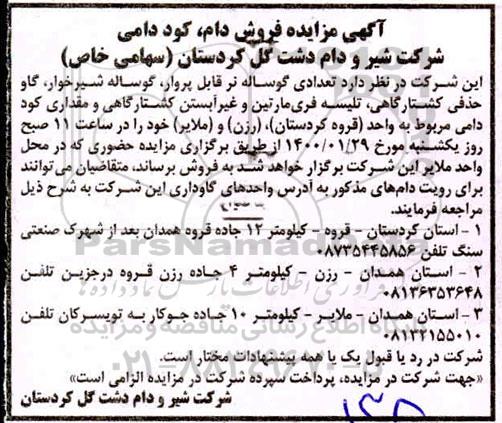 آگهی مزایده فروش دام، کود دامی
شرکت شیر و دام دشت گل کردستان (سهامی خاص)
این شرکت در نظر دارد تعدادی گوساله نر قابل پروار، گوساله شیرخوار، گاو
حذفی کشتارگاهی، تلیسه فری‌مارتین و غیرآبستن کشتارگاهی و مقداری کود
دامی مربوط به واحد (قروه کردستان)، (رزن) و (ملایر) خود را در ساعت ۱۱ صبح
روز یکشنبه مورخ ۱۴۰۰/۰۱/۲۹ از طریق برگزاری مزایده حضوری که در محل
واحد ملایر این شرکت برگزار خواهد شد به فروش برساند، متقاضیان می‌توانند
برای رویت دام‌های مذکور به آدرس واحدهای گاوداری این شرکت به شرح ذیل
مراجعه فرمایند.
۱ - استان کردستان - قروه - کیلومتر ۱۲ جاده قروه همدان بعد از شهرک صنعتی
سنگ تلفن ۰۸۷۳۵۴۴۵۸۵۶
۲ - استان همدان - رزن - کیلومتر ۴ جاده رزن قروه درجزین تلفن
۰۸۱۳۶۳۵۳۶۴۸
۳ - استان همدان - ملایر - کیلومتر ۱۰ جاده جوکار به تویسرکان تلفن
۰۸۱۳۲۱۵۵۰۱۰
شرکت در رد یا قبول یک یا همه پیشنهادات مختار است.
«جهت شرکت در مزایده، پرداخت سپرده شرکت در مزایده الزامی است»
شرکت شیر و دام دشت گل کردستان
ParsNamadData
پایگاه اطلاع رسانی مناقصه و مزایده
۰۲۱-۸۸۳۴۹۶۷۰